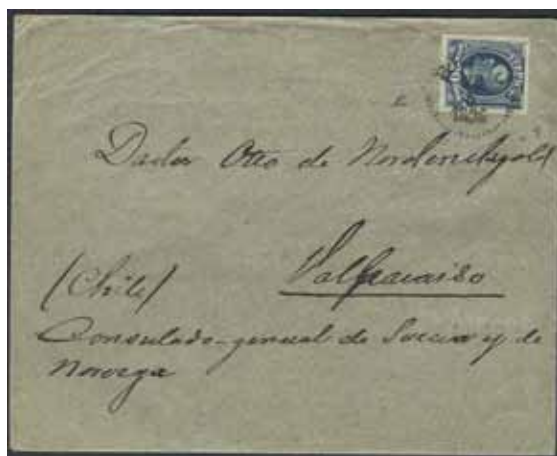 Doctor Otto de Nordenskjöld
Valparaiso
(Chile)
Consulado-general de Suecia y de
Noruega